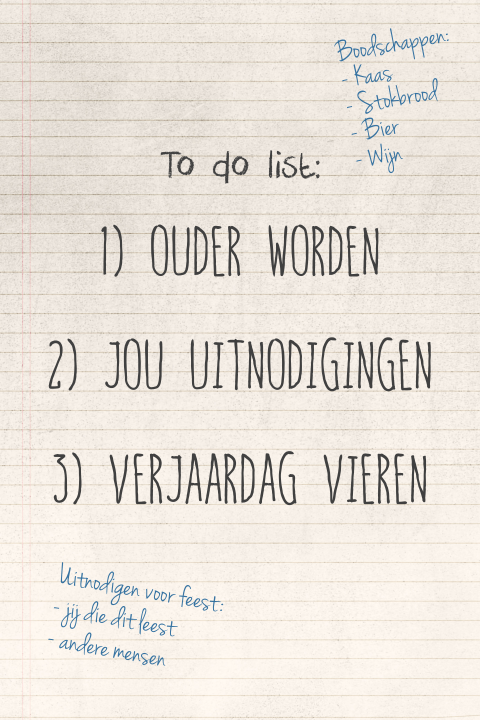 Boodschappen:
- Kaas
- Stokbrood
- Bier
- Wijn
To do list:
1) OUDER WORDEN
2) JOU UITNODIGINGEN
3) VERJAARDAG VIEREN
Uitnodigen voor feest:
- jij die dit leest
- andere mensen